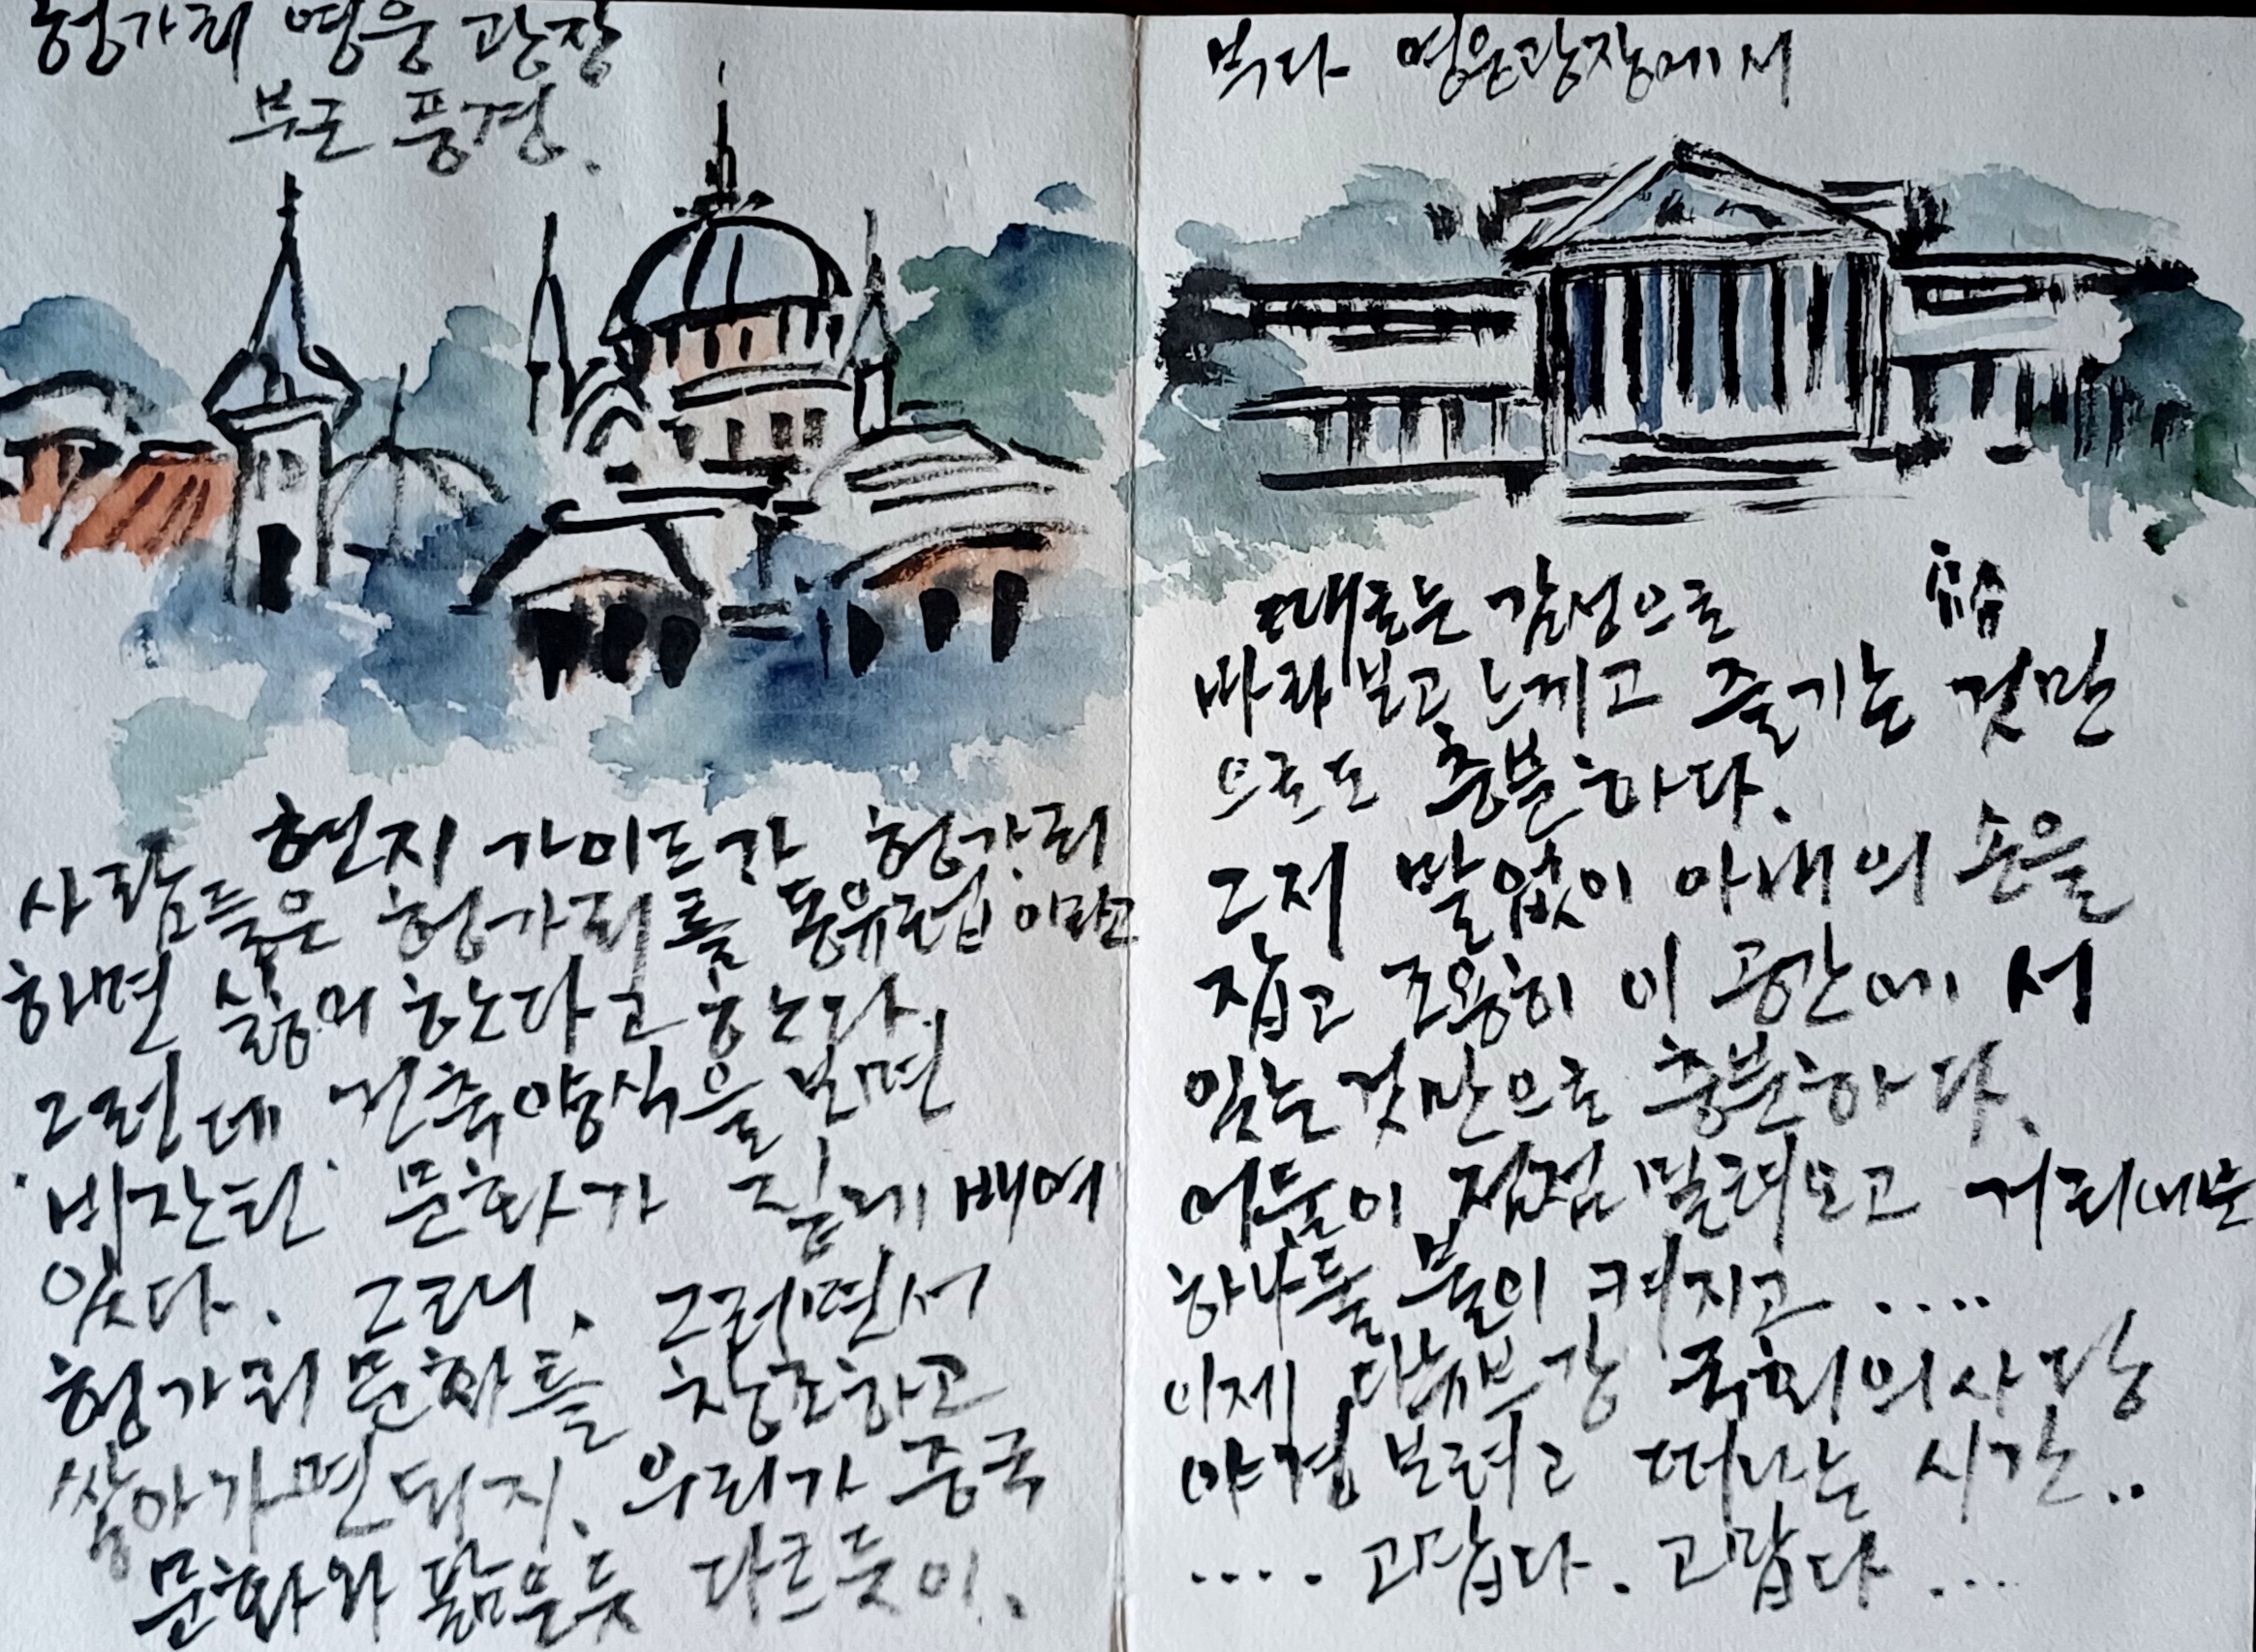 헝가리 영웅광장
부근 풍경.
현지 가이드가 헝가리
사람들은 헝가리를 동유럽이라고
하면 싫어 한다고 한다.
그런데 건축양식을 보면
'비잔틴' 문화가 짙게 배여
있다. 그래. 그러면서
헝가리 문화를 창조하고
살아가면 되지. 우리가 중국
문화와 닮은듯 다르듯이.
부다 영웅광장에서
때로는 감성으로
바라보고 느끼고 즐기는 것만
으로도 충분하다.
그저 말없이 아내의 손을
잡고 조용히 이 공간에 서
있는 것만으로 충분하다.
어둠이 점점 밀려오고 거리에는
하나둘 불이 켜지고 ....
이제 다뉴브강 국회의사당
야경 보려고 떠나는 시간..
.... 고맙다. 고맙다 ...